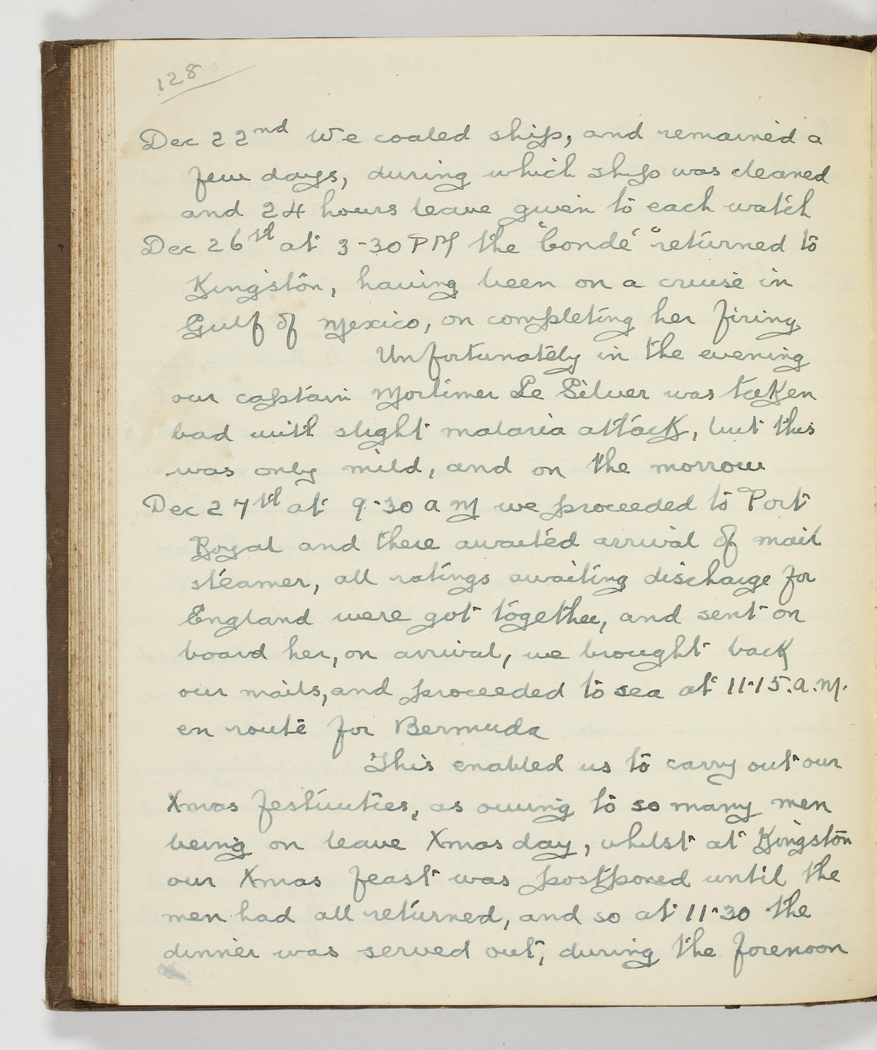 128
Dec 22nd We coaled ship, and remained a
few days, during which ship was cleaned
and 24 hours leave given to each watch
Dec 26th at 3-30 PM the "Condé" returned to
Kingston, having been on a cruise in
Gulf of Mexico, on completing her firing
Unfortunately in the evening
our captain Mortimer Le Silver was taken
bad with slight malaria attack, but this
was only mild, and on the morrow
Dec 27th at 9-30 a M we proceeded to Port
Royal and there awaited arrival of mail
steamer, all ratings awaiting discharge for
England were got together, and sent on
board her, on arrival, we brought back
our mails, and proceeded to sea at 11-15.a.m.
en route for Bermuda
This enabled us to carry out our
Xmas festivities, as owing to so many men
being on leave Xmas day, whilst at Kingston
our Xmas feast was postponed until the
men had all returned, and so at 11-30 the
dinner was served out, during the forenoon